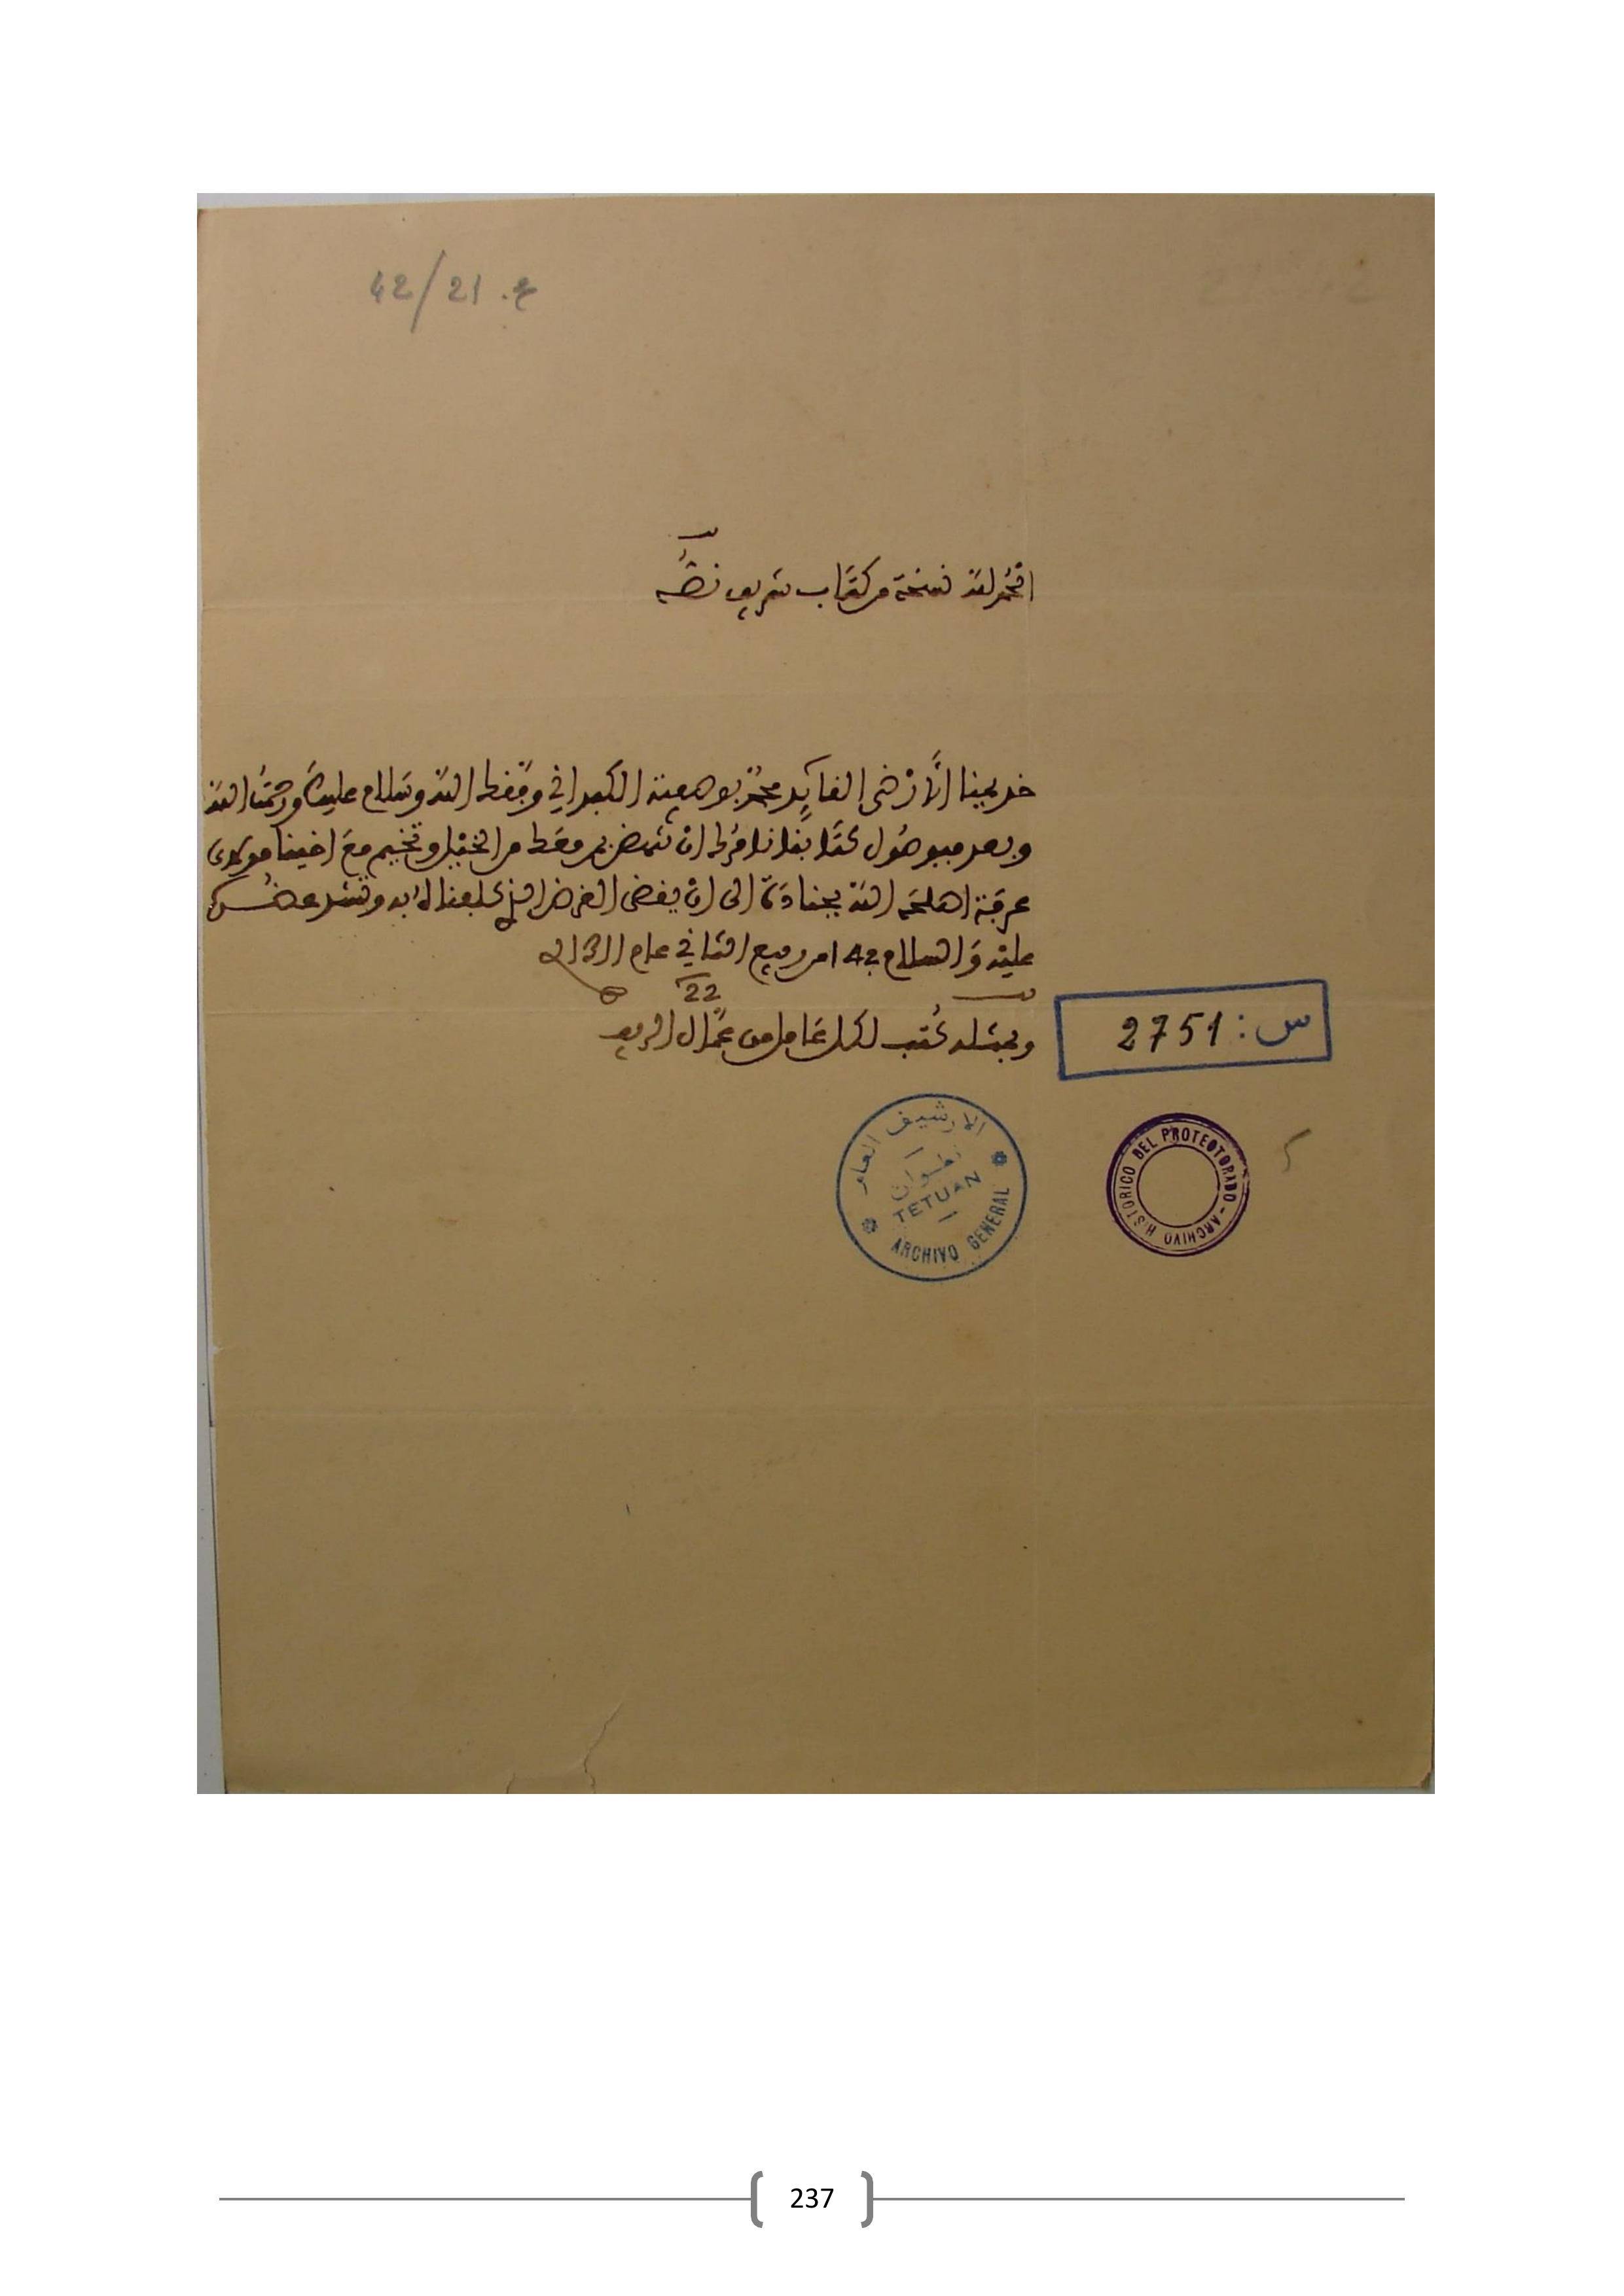 42/21 ع.
الحمد لله نسخة من كتاب شريف نصه
خديمنا الأرضى القايد محمد بوهيتة الكبداني وفقك الله وسلام عليك ورحمت الله
وبعد فبوصول كتابنا نامرك ان تنهض بمن معك من الخيل وتخيم مع اخينا مولاي
عرفة اصلحه الله بجنادة الى ان يقضى الغرض الذي كلفناه به وتشد عضده
عليه والسلام في 14 من ربيع الثاني عام 1311
22
وبمثله كتب لكل عامل من عمال الريف
س: 2751
الارشيف العام
تطوان
TETUAN
ARCHIVO GENERAL
ARCHIVO HISTORICO DEL PROTECTORADO
237